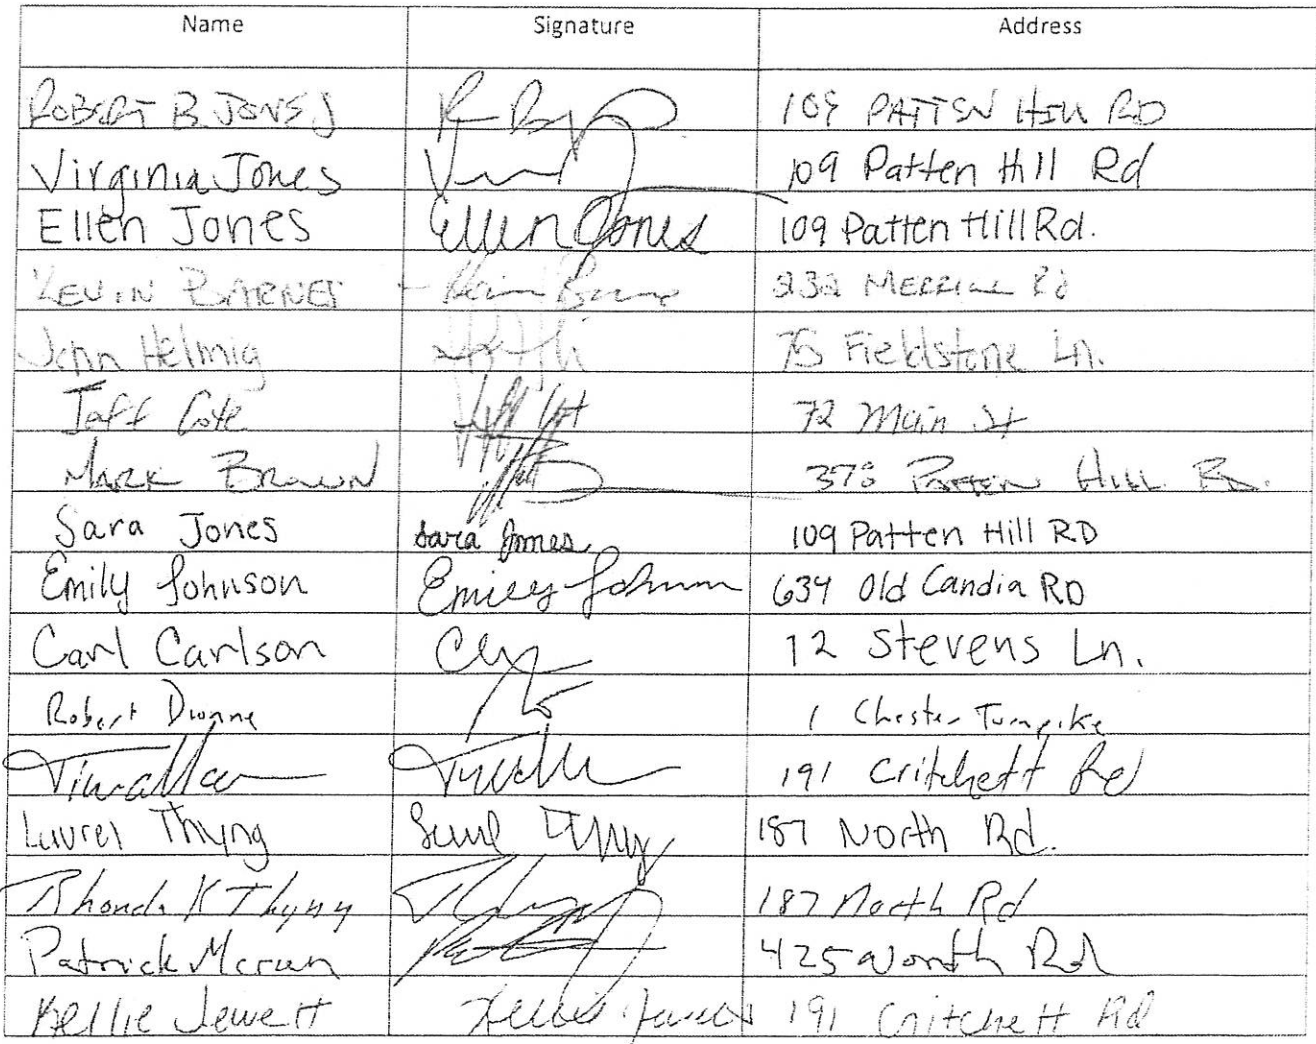 Name Signature Address
ROBERT B. JONES 109 PATTEN HILL RD
Virginia Jones 109 Patten Hill Rd
Ellen Jones Ellen Jones 109 Patten Hill Rd.
KEVIN BARNES 232 MERRILL Rd
John Helmig 75 Fieldstone Ln.
Jeff Cote 72 Main St
MARK BROWN 378 PATTEN HILL RD.
Sara Jones Sara Jones 109 Patten Hill RD
Emily Johnson Emily Johnson 634 Old Candia RD
Carl Carlson 12 Stevens Ln.
Robert Dionne 1 Chester Turnpike
191 Critchett Rd
Laurel Thyng 187 North Rd.
Rhonda K Thyng 187 North Rd
Patrick 425 North Rd
Kellie Jewett Kellie Jewett 191 Critchett Rd